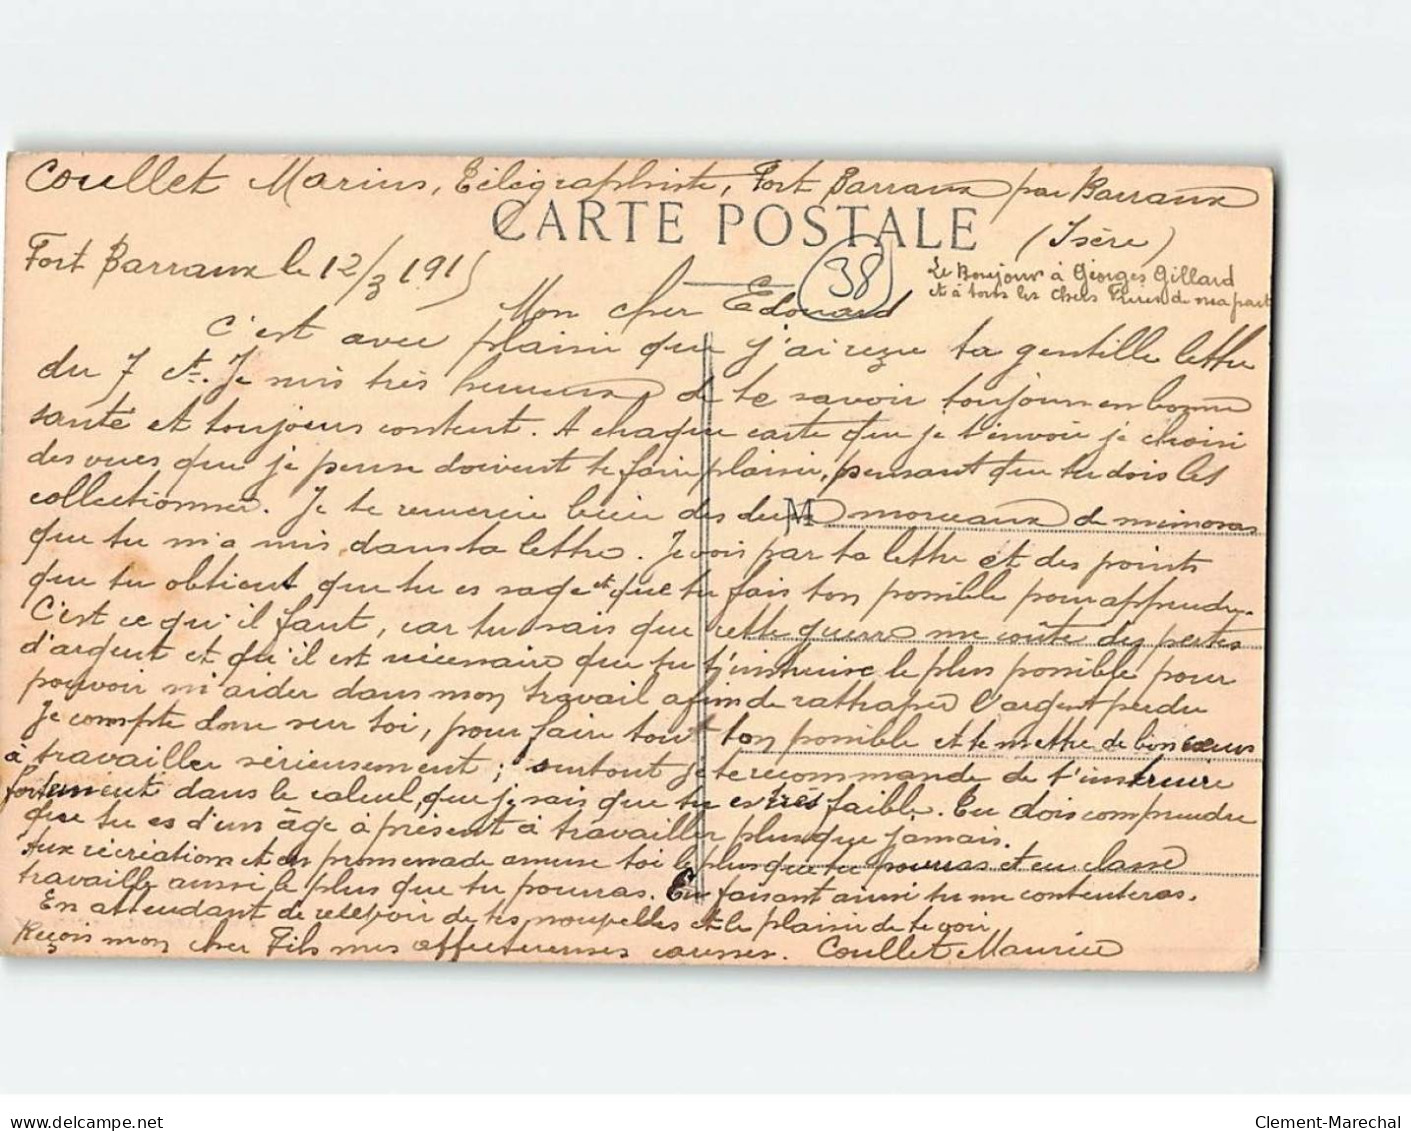 Coullet Marius, Télégraphiste, Fort Barraux par Barraux
CARTE POSTALE
(Isère)
Fort Barraux le 12/3 1915
38
Le Bonjour à Georges Gillard
et à tous les chers de ma part
Mon cher Edouard
C'est avec plaisir que j'ai reçu ta gentille lettre
du 7 ct. Je suis très heureux de te savoir toujours en bonne
santé et toujours content. A chaque carte que je t'envoie je choisi
des vues que je pense doivent te faire plaisir, pensant que tu dois les
collectionner. Je te remercie bien des deux morceaux de mimosas
M
que tu m'a mis dans ta lettre. Je vois par ta lettre et des points
que tu obtient que tu es sage et que tu fais ton possible pour apprendre.
C'est ce qu'il faut, car tu sais que cette guerre me coûte des pertes
d'argent et qu'il est nécessaire que tu t'instruise le plus possible pour
pouvoir m'aider dans mon travail afin de rathaper l'argent perdu
Je compte donc sur toi, pour faire tout ton possible et te mettre de bon cœur
à travailler sérieusement; surtout je te recommande de t'instruire
fortement dans le calcul, que je sais que tu es très faible. Tu dois comprendre
que tu es d'un âge à présent à travailler plus que jamais.
Aux récréations et en promenade amuse toi le plus que tu pourras et en classe
travaille aussi le plus que tu pourras. En faisant ainsi tu me contenteras.
En attendant de recevoir de tes nouvelles et le plaisir de te voir
Reçois mon cher Fils mes affectueuses caresses. Coullet Maurice
www.delcampe.net
Clement-Marechal